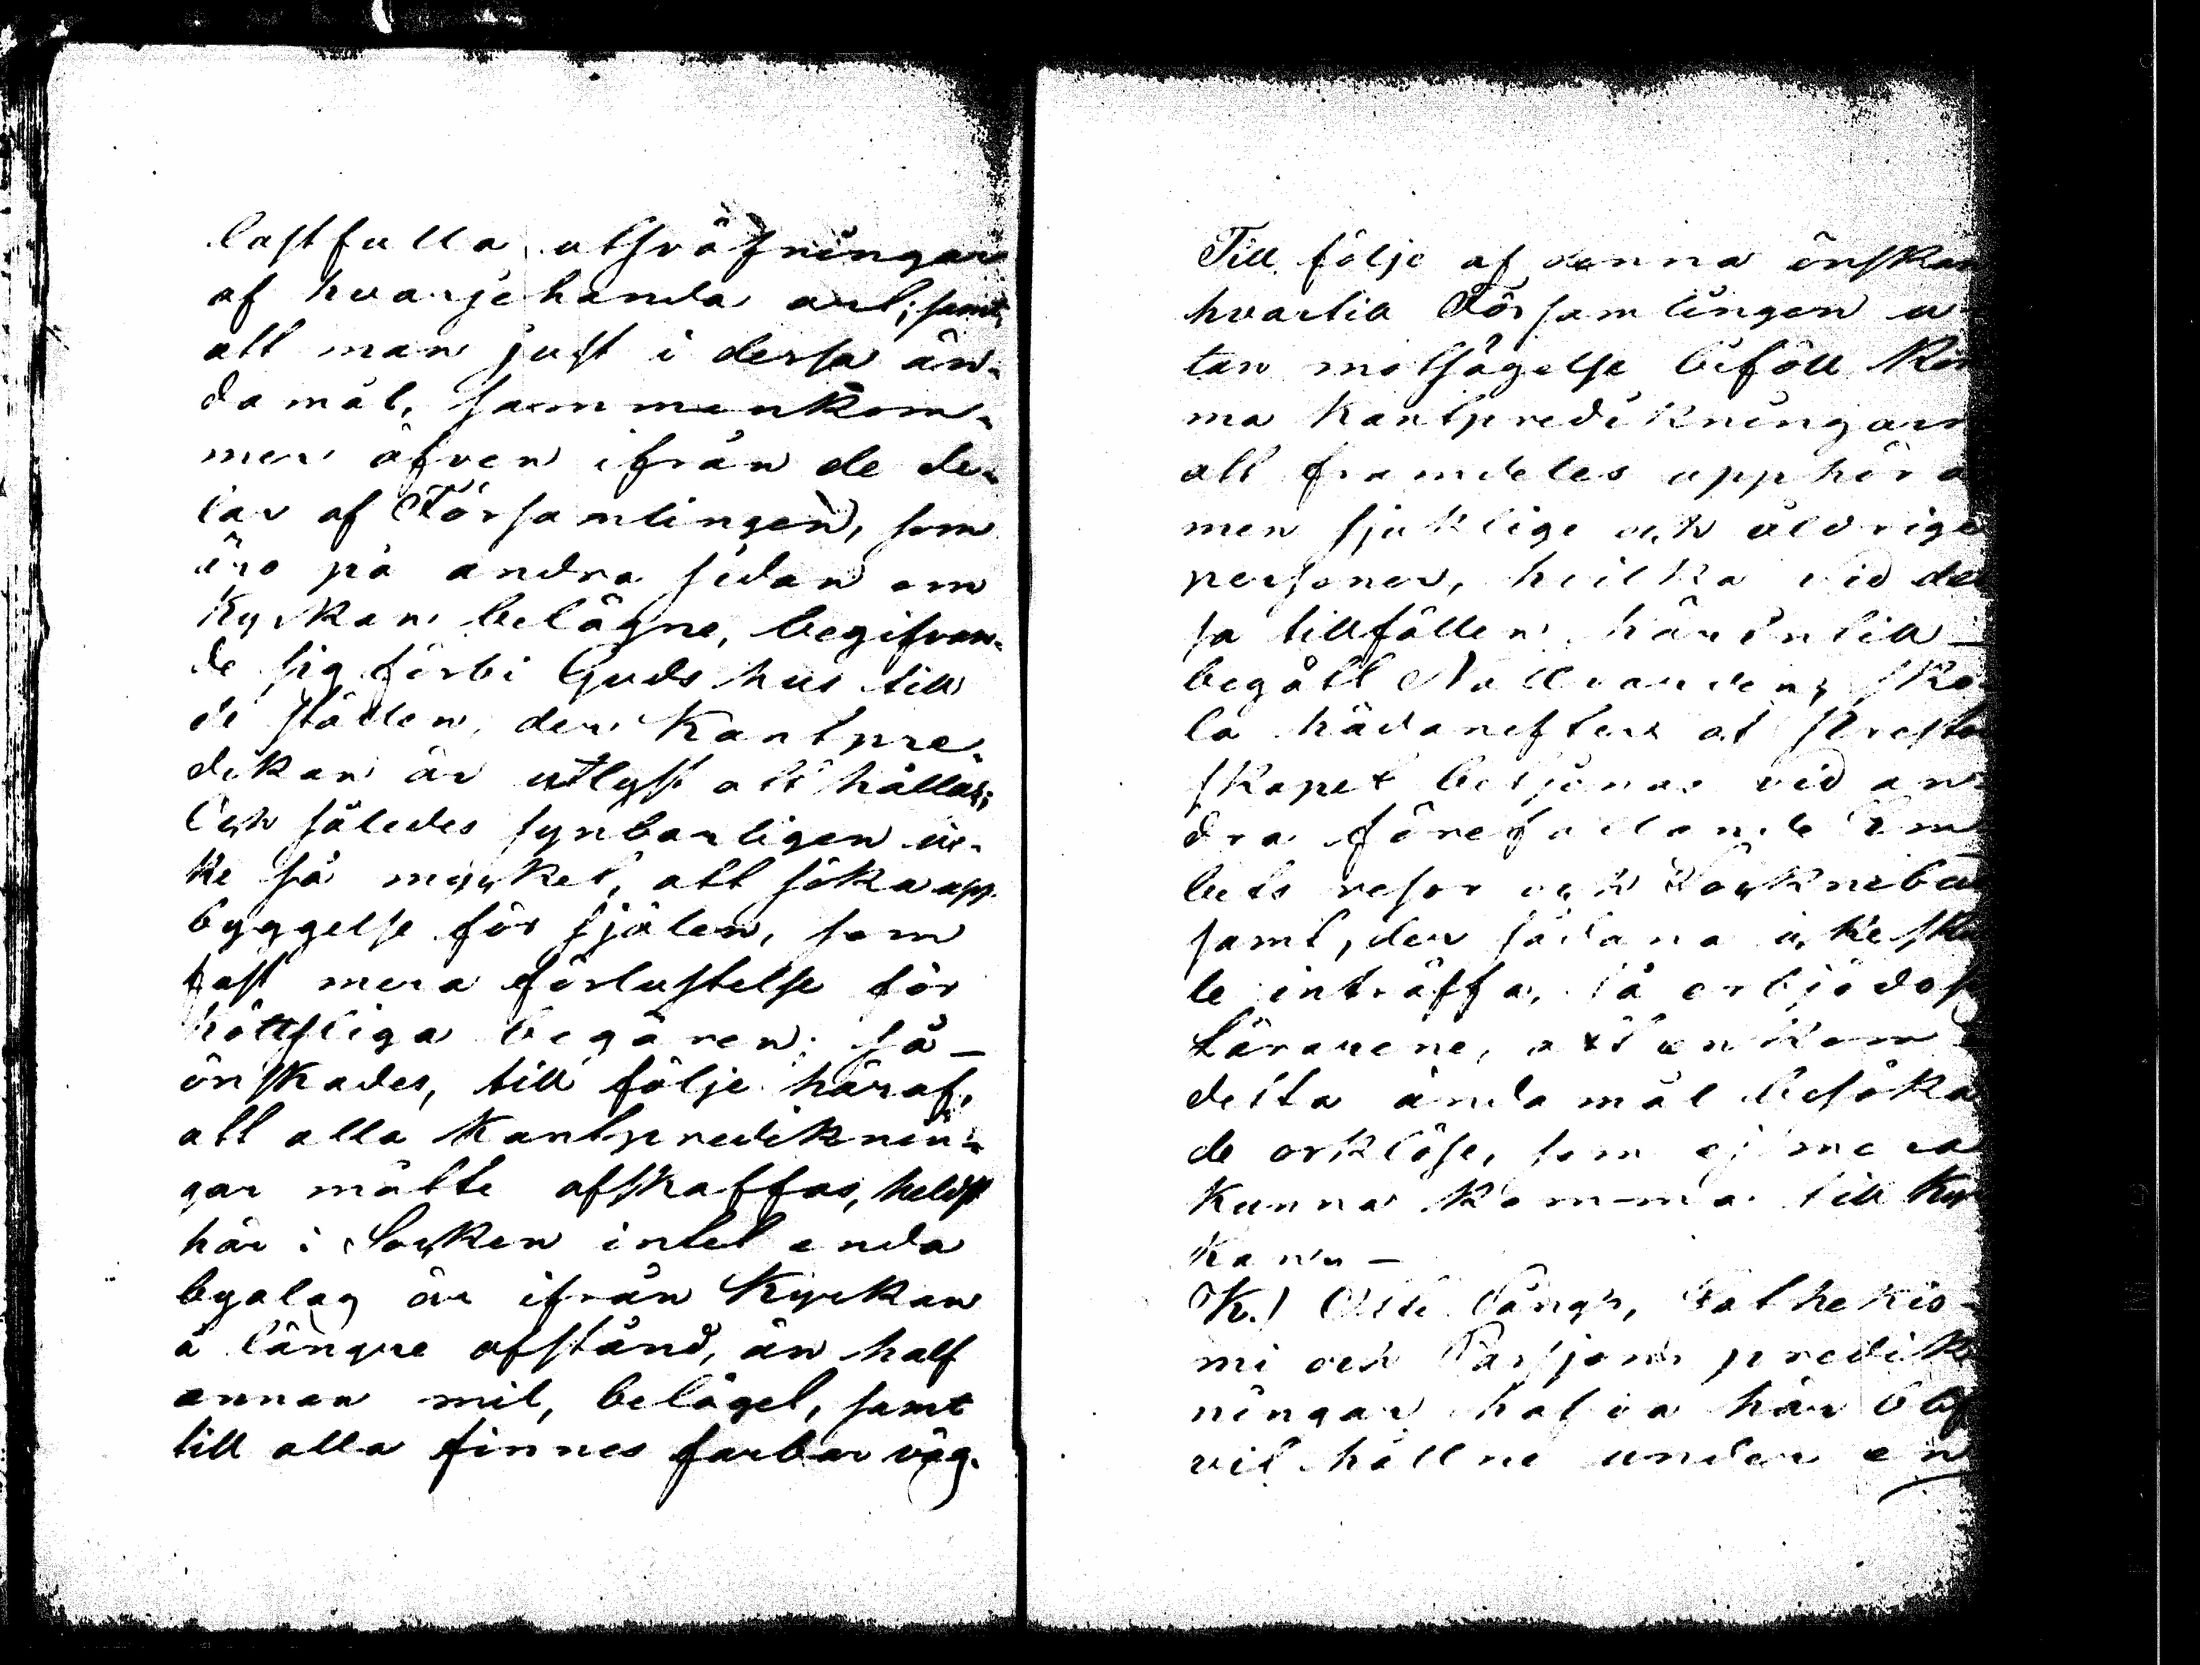 lastfulla utsväfningar
af hvarjehanda art; samt
att man just i dessa än-
damål, sammankom-
mer äfven ifrån de de-
lar af Församlingen, som
äro på andra sidan om
Kyrkan belägne, begifvan-
de sig förbi Guds hus till
de ställen, der Kantpre-
dikan är utlyst att hållas;
Och således synbarligen ic-
ke så mycket, att söka upp-
byggelse för sjalen, som
fast mera förlustelse för
köttsliga begären; så –
önskades, till följe häraf,
att alla Kantprediknin-
gar måtte afskaffas, heldst
här i Socken intet enda
byalag är ifrån Kyrkan
å längre afstånd, än half
annan mil, belägel, samt
till alla finnes farbar väg.
Till följe af denna önskan
hvartill Församlingen u-
tan motsägelse biföll kom
ma Kantpredikningarn
att framdeles upphöra
men sjuklige och åldrige
personer, hvilka vid des
sa tillfällen härintill –
begått Nattvarden, sko-
la hädanefter af Prester
skapet betjenas vid an-
dra förefallande Em
bets resor och Sockneбud
samt, der sådana icke skul
le inträffa, så erbjödo s
Lärarene, att enkom i
detta ändamål besöka
de orklöse, som ej mera
kunna komma till Kyr
kan. –
K.) Otte Sångs, Cathekis-
mi och Passions predik
ningar hafva här blif
vit hållne under en